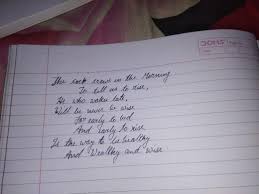 The cock crows in the Morning
To tell us to rise,
He who wakes late,
Will be never be wise
For early to bed
And Early to rise
Is the way to be healthy
And Wealthy and wise